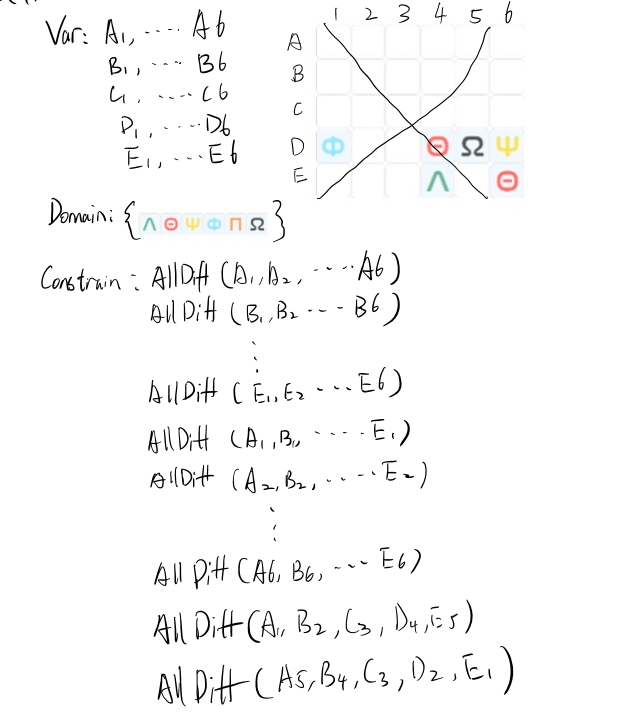 Var: A1, ···· A6
B1, ···· B6
C1, ····· C6
D1, ·····D6
E1, ···E6
1 2 3 4 5 6
A
B
C
D Φ Θ Ω Ψ
E Λ Θ
Domain: { Λ Θ Ψ Φ Π Ω }
Constrain: AllDiff (A1, A2, ····· A6)
All Diff (B1, B2 --- B6)
⋮
AllDiff (E1, E2 ···· E6)
AllDiff (A1, B1, ····· E1)
AllDiff (A2, B2, ····· E2)
⋮
All Diff (A6, B6, ··· E6)
All Diff (A1, B2, C3, D4, E5)
All Diff (A5, B4, C3, D2, E1)